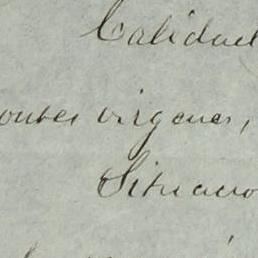 Calidad
ontes virgenes,
Situacio